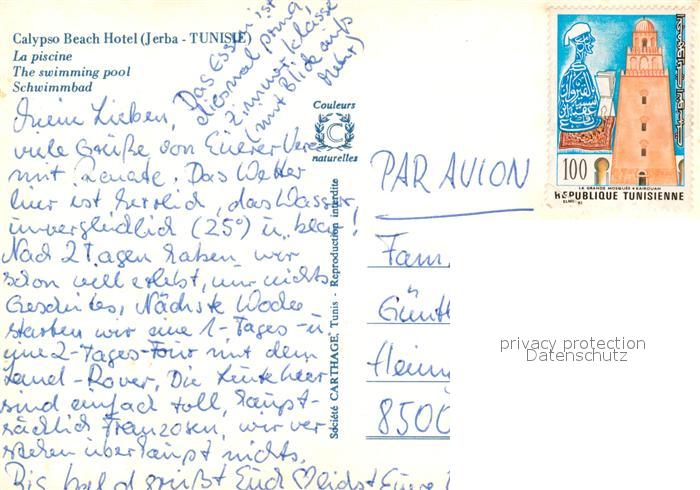 Calypso Beach Hotel (Jerba - TUNISIE)
La piscine
The swimming pool
Schwimmbad
Das Essen ist
diesmal prima,
Zimmer klasse
(mit Blick aufs
Meer)
Couleurs
C
naturelles
Meine Lieben,
viele Grüße von Euerer Vere
mit Renate. Das Wetter
hier ist herrlich, das Wasser
unvergleichlich (25°) u. blau!
Nach 2 Tagen haben wir
schon viel erlebt, nur nichts
Gescheites, Nächste Woche
starten wir eine 1-Tages-u
eine 2-Tages-Tour mit dem
Land-Rover. Die Leute hier
sind einfach toll, haupt-
sächlich Franzosen, wir ver
stehen überhaupt nichts.
Bis bald grüßt Euch herzlichst Eure
Société CARTHAGE, Tunis - Reproduction interdite
PAR AVION
100
LA GRANDE MOSQUÉE • KAIROUAN
REPUBLIQUE TUNISIENNE
Fam.
Günth
Heinr
8500
privacy protection
Datenschutz